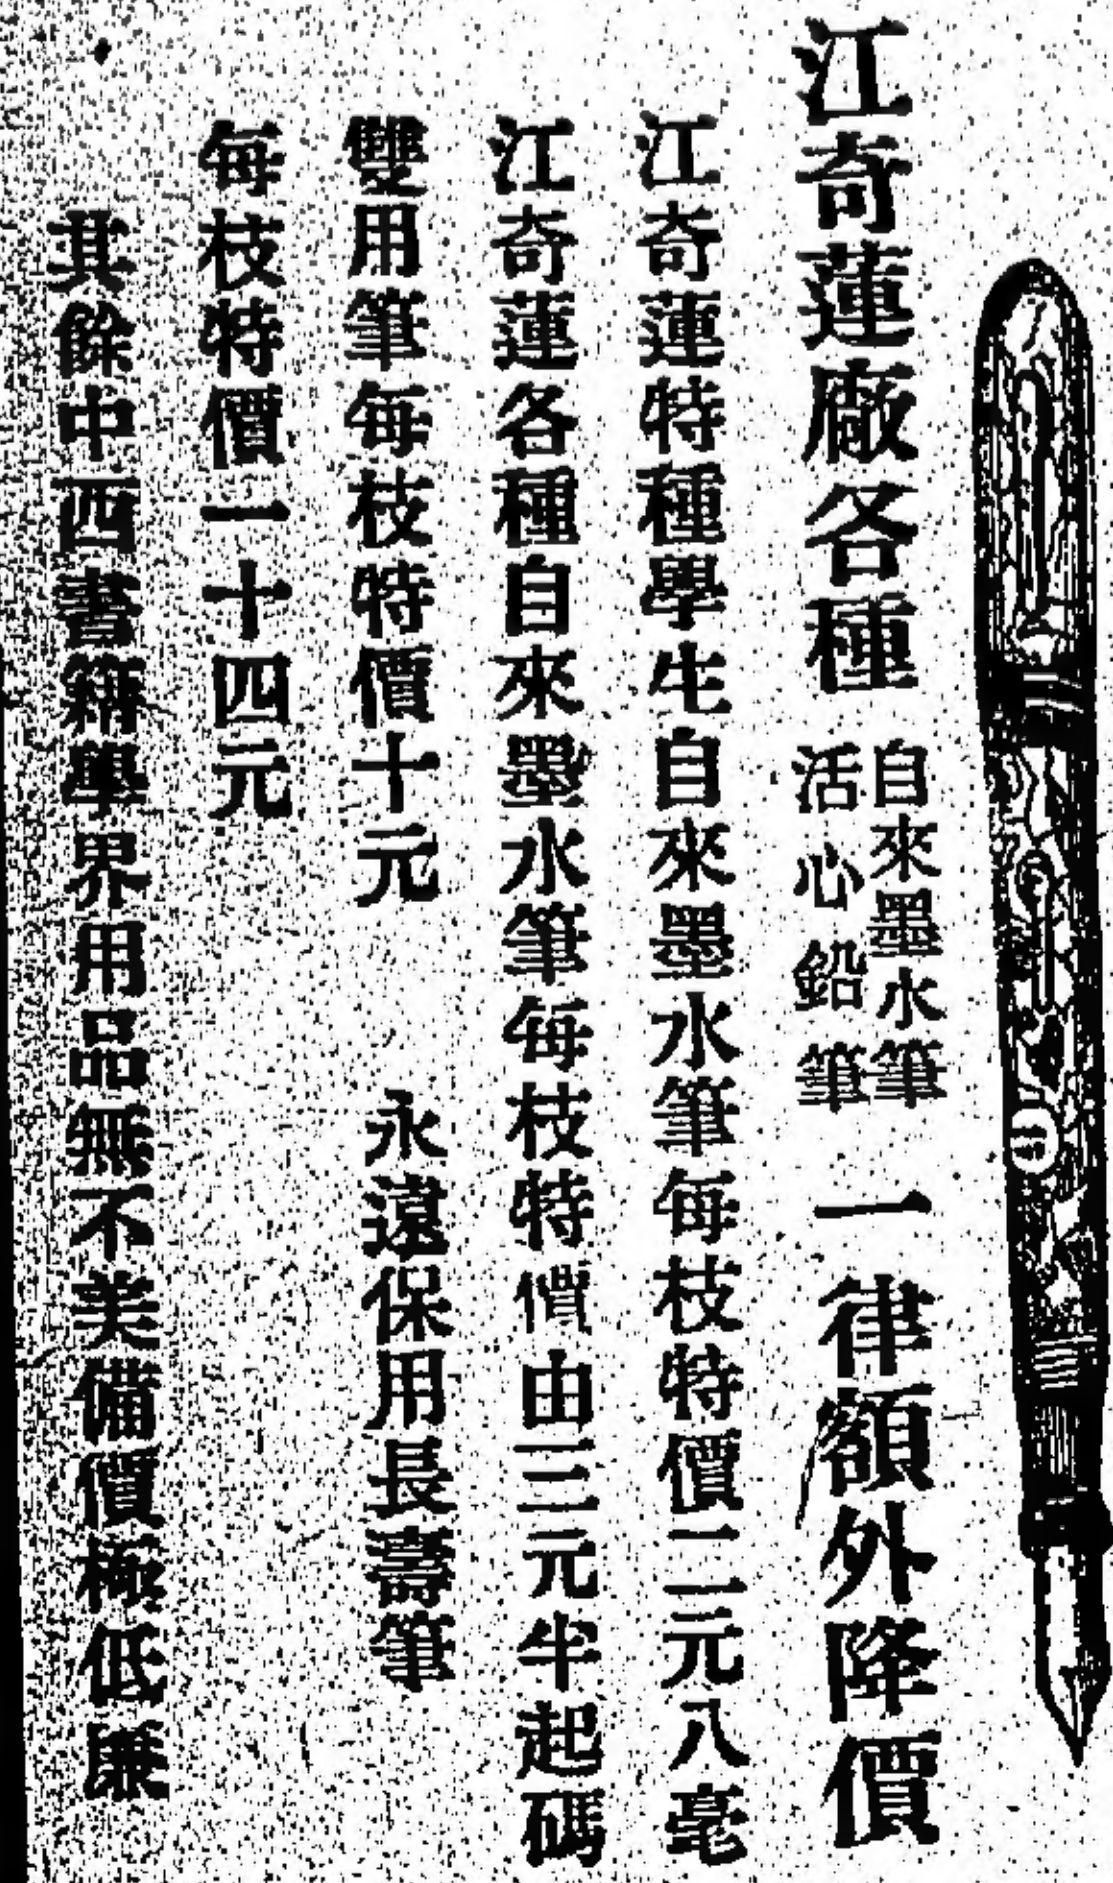 江奇蓮廠各種自來墨水筆活心鉛筆一律額外降價
江奇蓮特種學生自來墨水筆每枝特價二元八毫
江奇蓮各種自來墨水筆每枝特價由三元半起碼
雙用筆每枝特價十元　永遠保用長壽筆
每枝特價一十四元
其餘中西書籍學界用品無不美備價極低廉